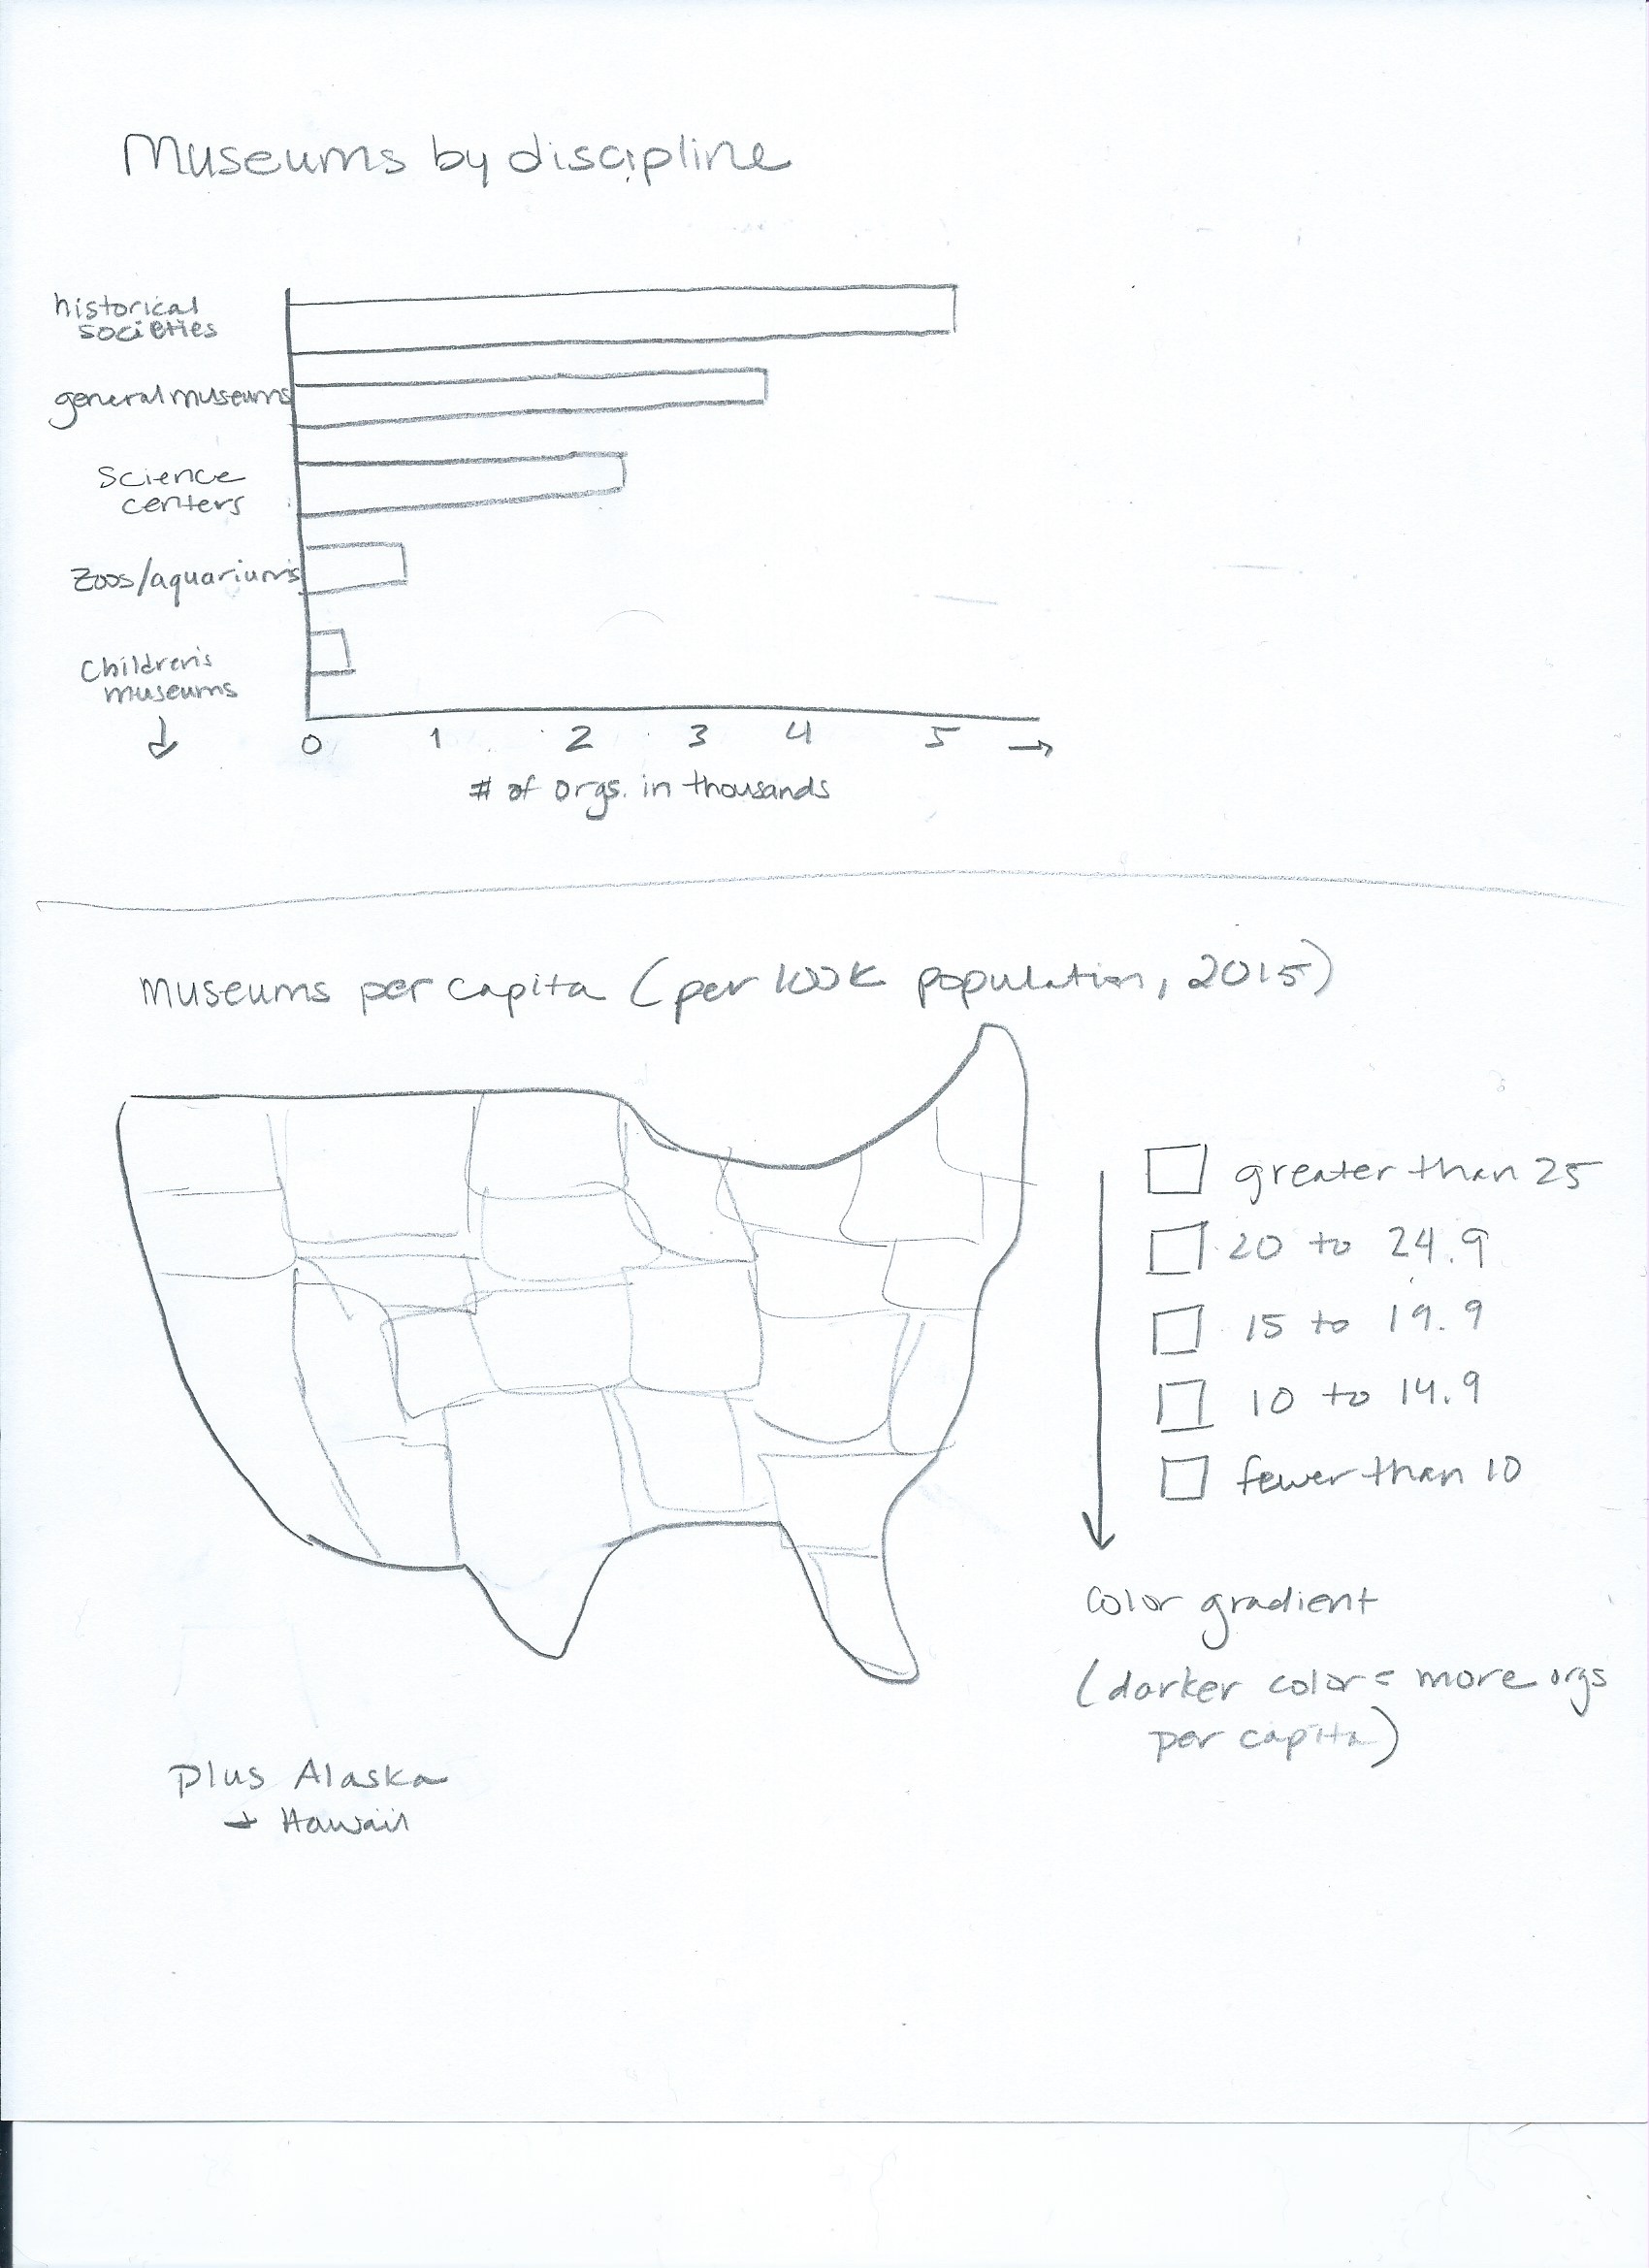 Museums by discipline
historical
societies
general museums
Science
centers
Zoos/aquariums
Children's
museums
0 1 2 3 4 5
# of orgs. in thousands
museums per capita (per 100K population, 2015)
greater than 25
20 to 24.9
15 to 19.9
10 to 14.9
fewer than 10
Color gradient
(darker color = more orgs
per capita)
plus Alaska
+ Hawaii